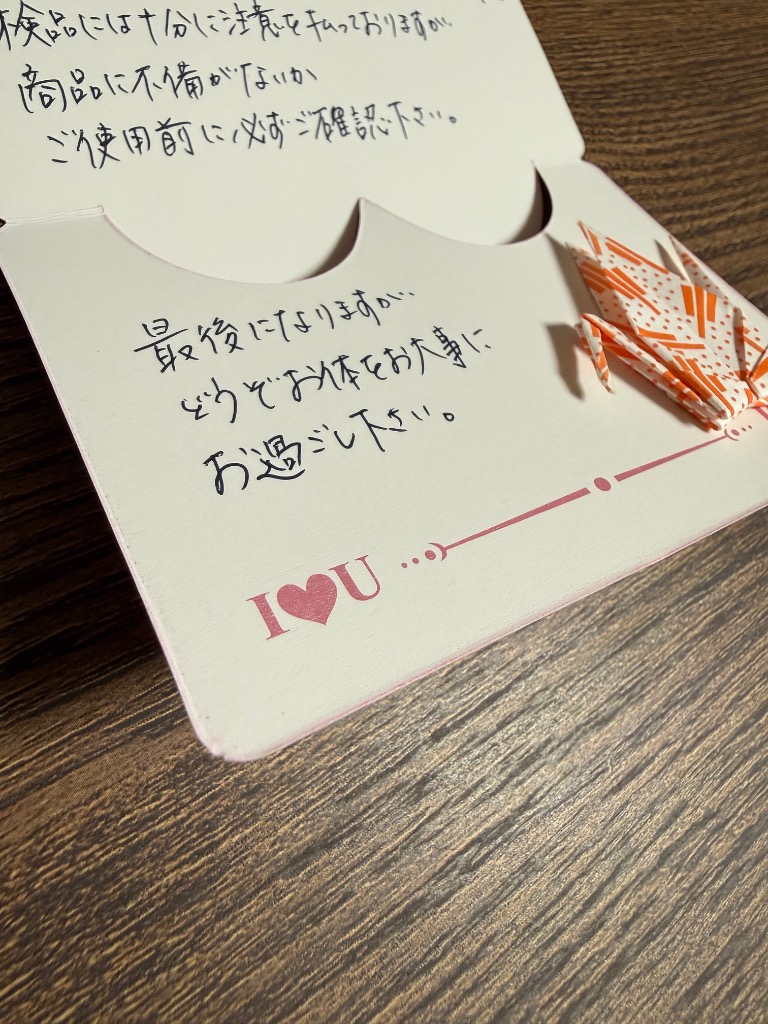 検品には十分に注意を払っておりますが、
商品に不備がないか
ご使用前に必ずご確認下さい。
最後になりますが、
どうぞお体をお大事に
お過ごし下さい。
I♥U